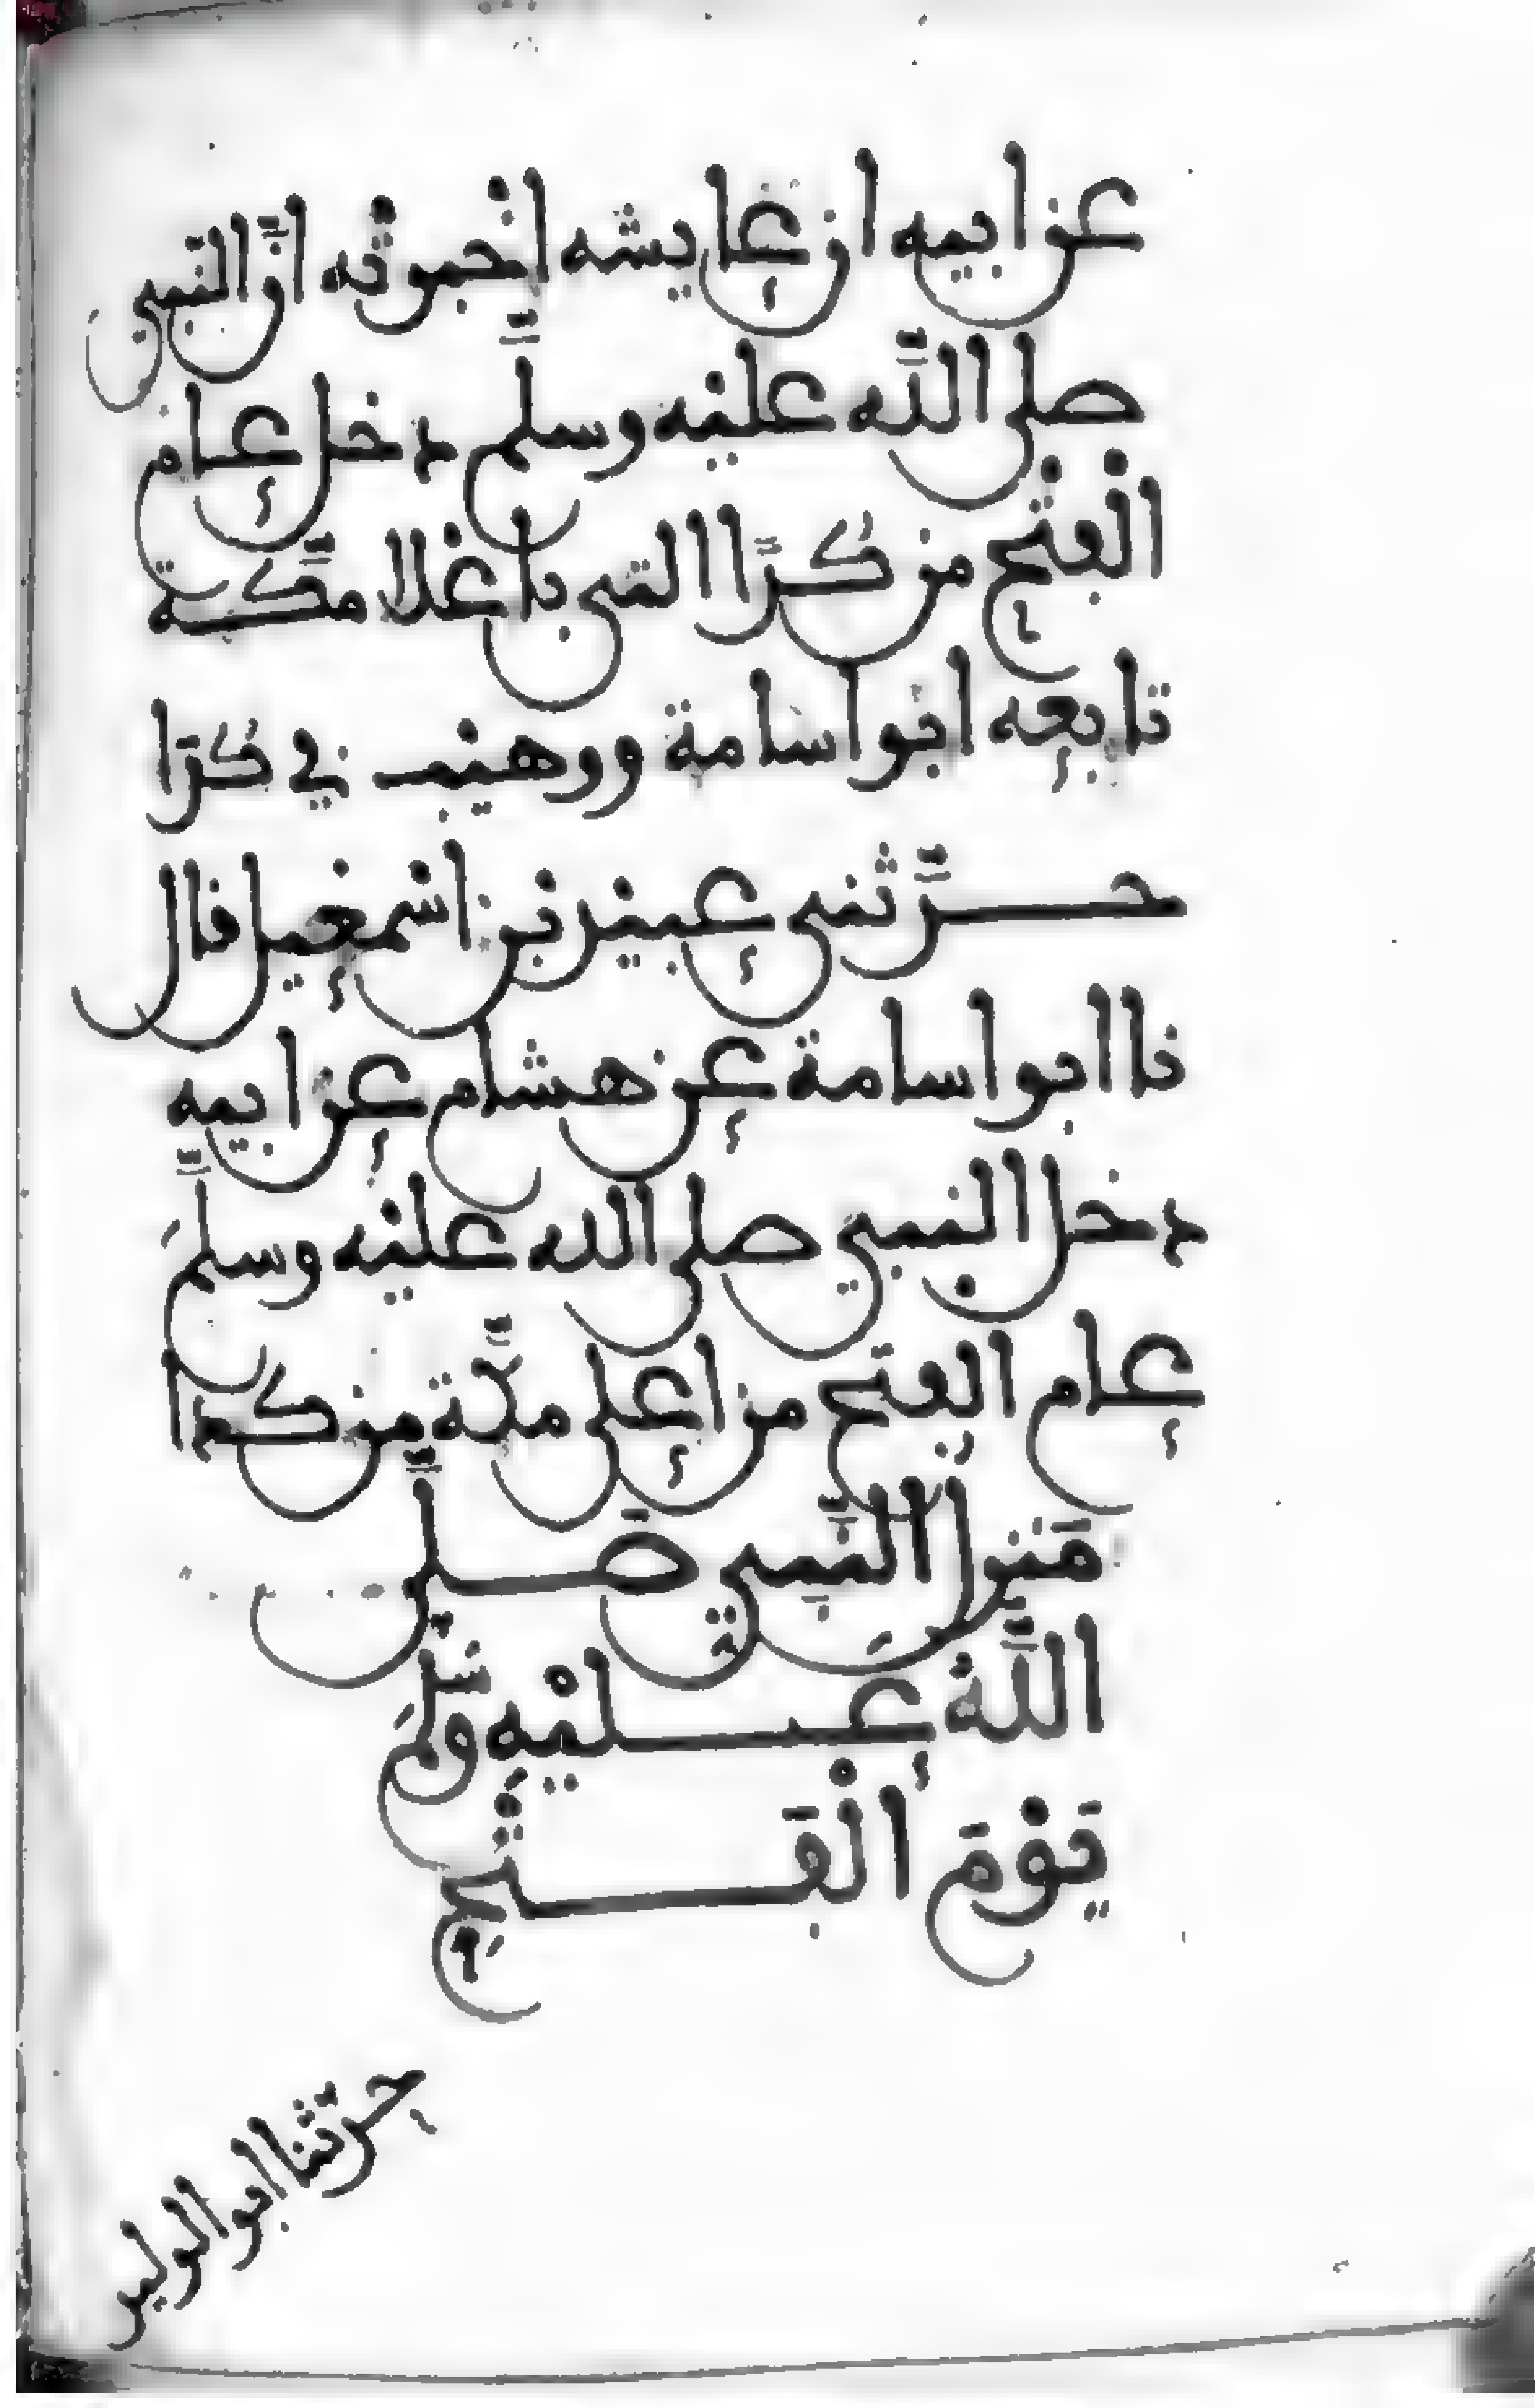 عن ابيه ان عايشه اخبرته ان النبي
صلى الله عليه وسلم دخل عام
الفتح من كدا التي باعلا مكة
تابعه ابو اسامة ووهيب في كدا
حدثني عبيد بن اسمعيل قال
نا ابو اسامة عن هشام عن ابيه
دخل النبي صلى الله عليه وسلم
عام الفتح من اعلى مكة من كدا
مَنزل النَّبي صَلى
اللَّهُ عَليْهِ وَسَلمَ
يَوْمَ الْفَتْحِ
حدثنا ابو الوليد